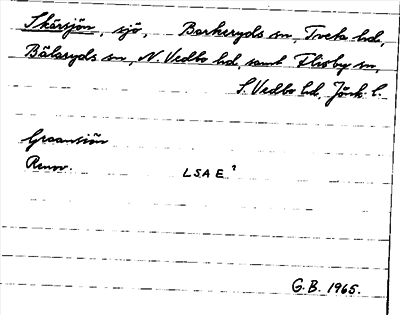 Skärsjön, sjö, Barkeryds sn, Tveta hd,
Bälaryds sn, N. Vedbo hd, samt Flisby sn,
S. Vedbo hd, Jönk. l.
Graansiön
Renov. LSA E.²
G.B. 1965.